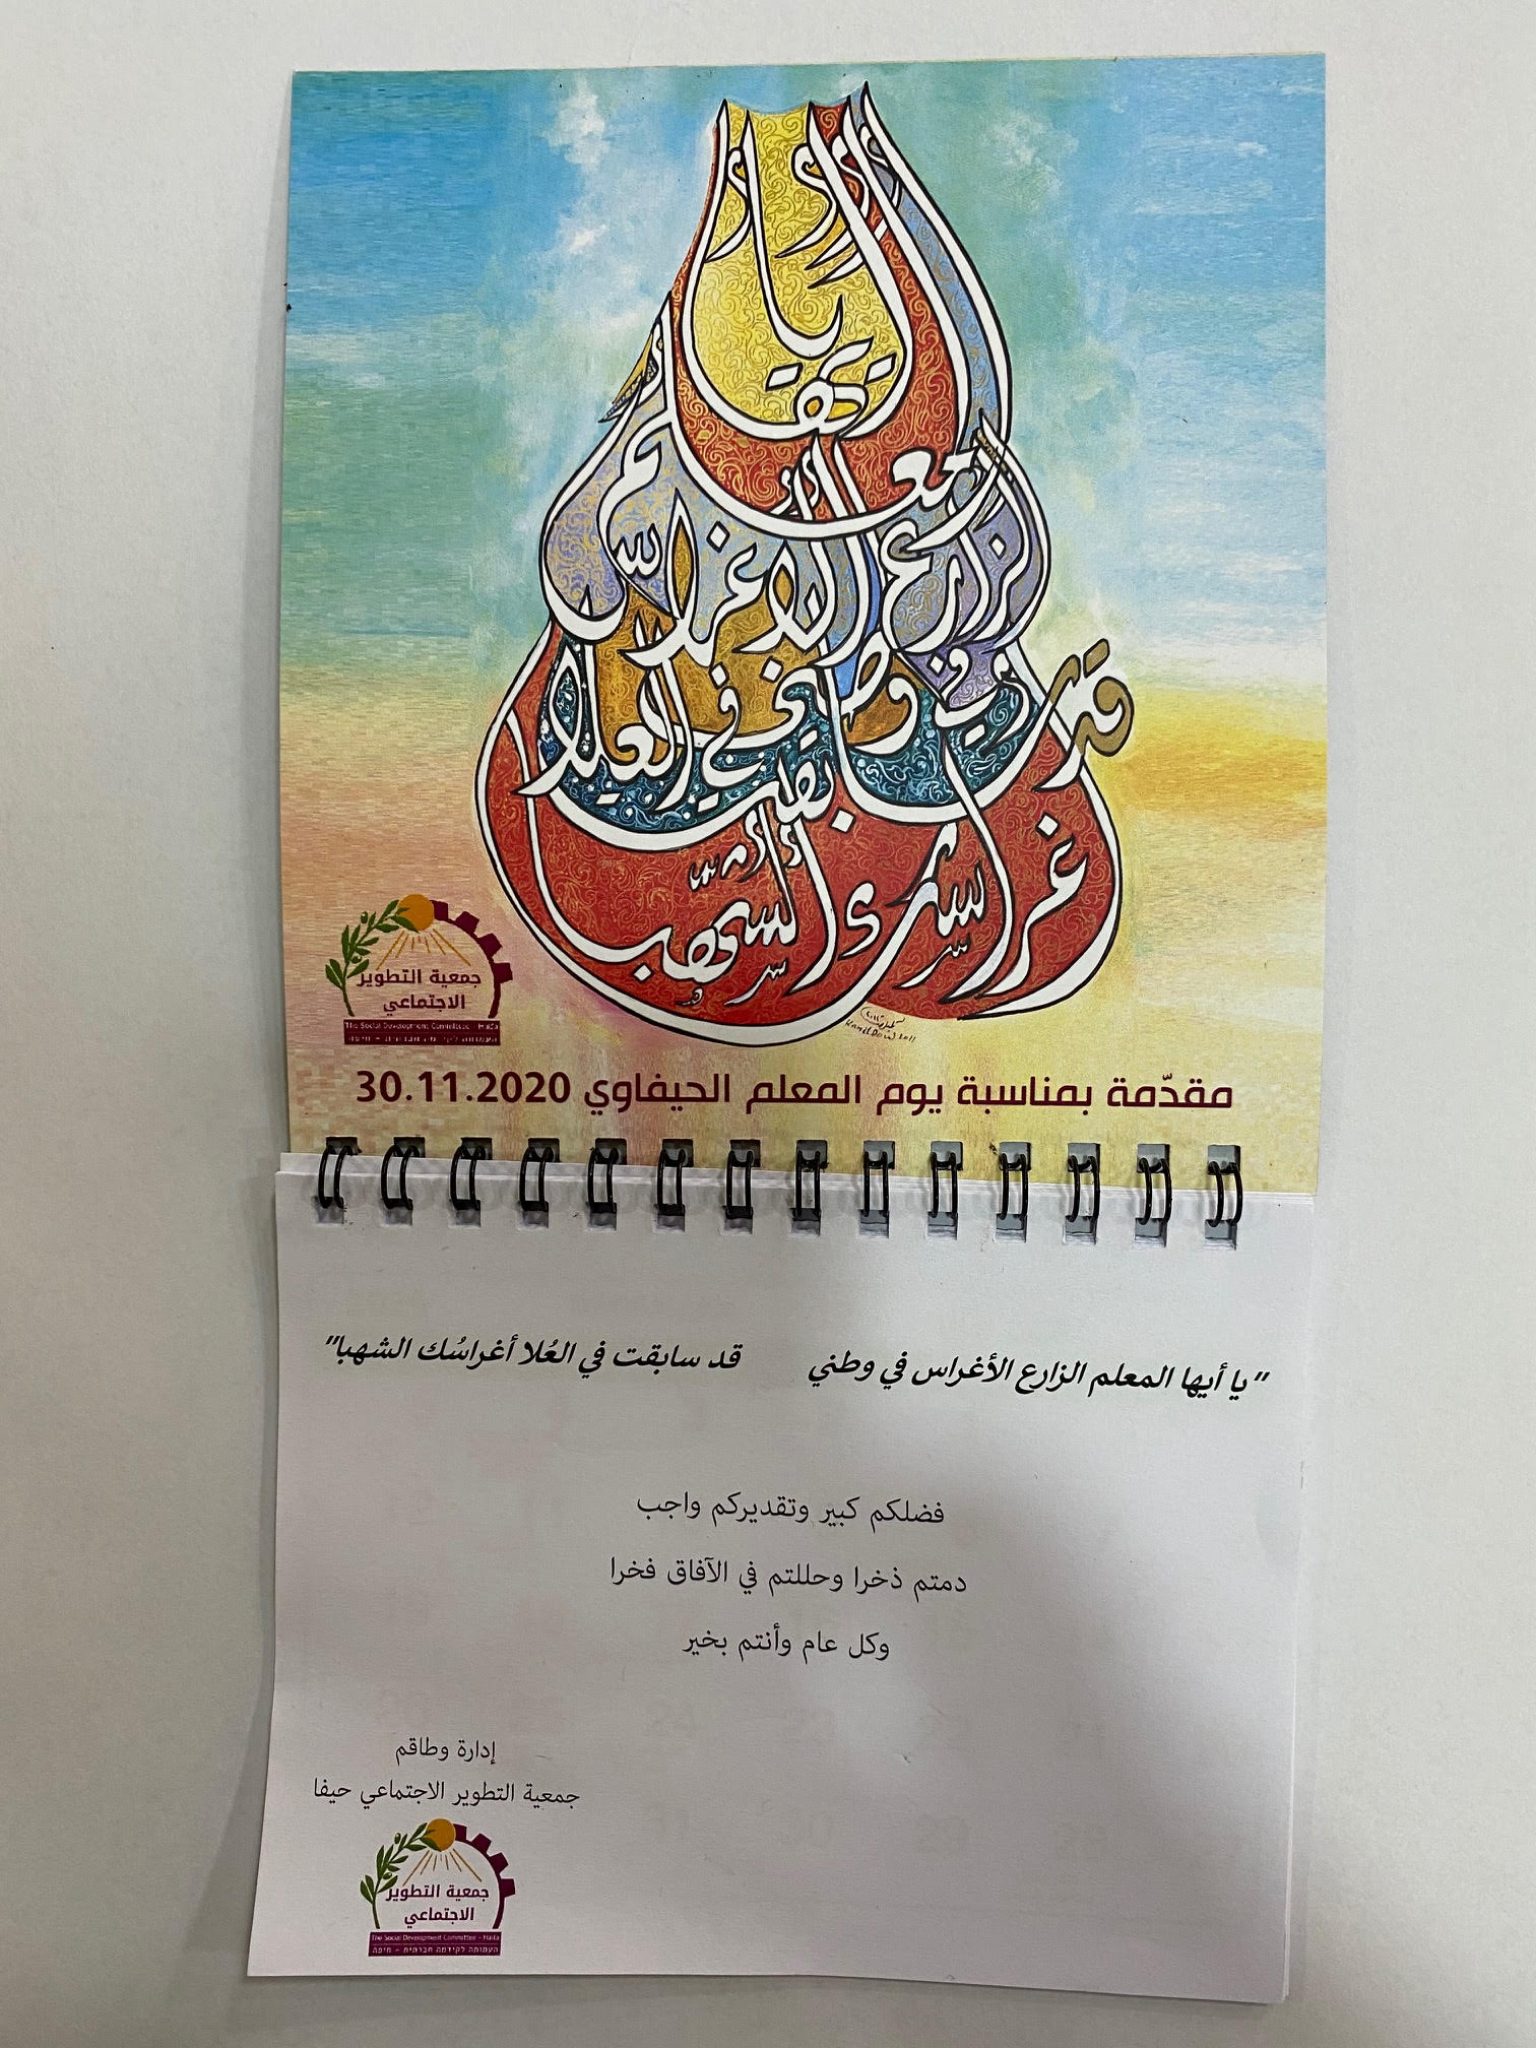 يا أيها المعلم
الزارع الأغراس
في وطني
قد سابقت في العلا
أغراسك الشهبا
Kamil Daw 2011
جمعية التطوير
الاجتماعي
The Social Development Committee - Haifa
העמותה לקידמה חברתית - חיפה
مقدّمة بمناسبة يوم المعلم الحيفاوي 30.11.2020
"يا أيها المعلم الزارع الأغراس في وطني قد سابقت في العُلا أغراسُك الشهبا"
فضلكم كبير وتقديركم واجب
دمتم ذخرا وحللتم في الآفاق فخرا
وكل عام وأنتم بخير
إدارة وطاقم
جمعية التطوير الاجتماعي حيفا
جمعية التطوير
الاجتماعي
The Social Development Committee - Haifa
העמותה לקידמה חברתית - חיפה